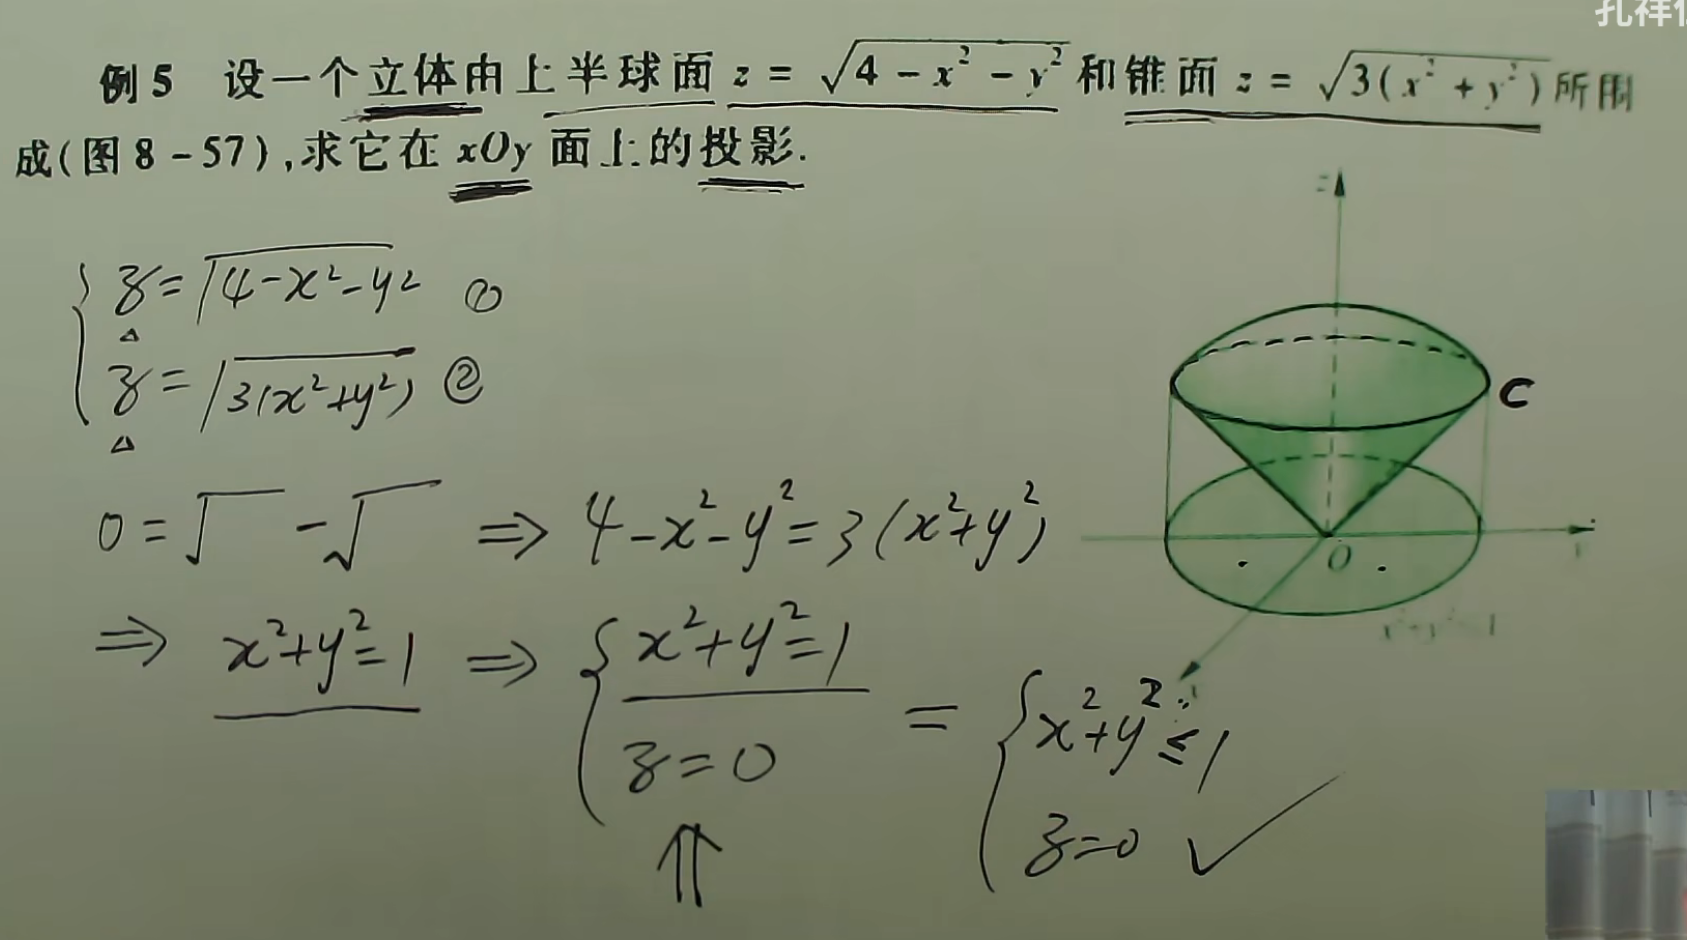 孔祥
例5 设一个立体由上半球面 z = √(4 - x² - y²) 和锥面 z = √(3(x² + y²)) 所围
成(图8-57),求它在 xOy 面上的投影.
z = √(4-x²-y²) ①
z = √(3(x²+y²)) ②
0 = √ - √ ⇒ 4-x²-y² = 3(x²+y²)
⇒ x²+y²=1 ⇒ { x²+y²=1
z=0
= { x²+y²≤1
z=0 ✓
z
C
O